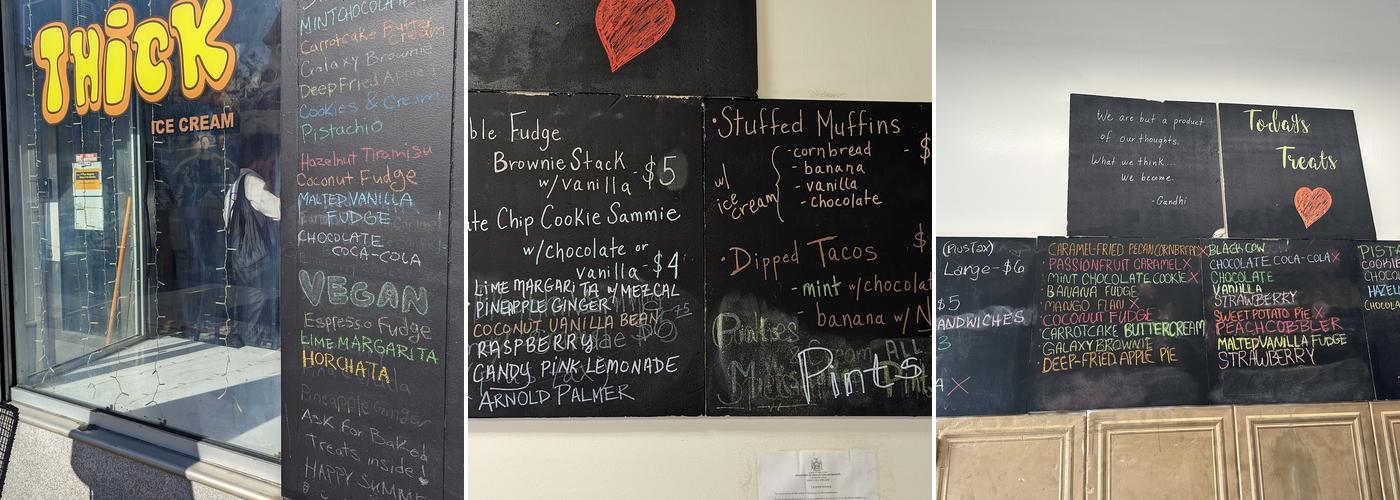 THiCK
ICE CREAM
MINTCHOCOLATE
Carrotcake Butter
Cream
Galaxy Brownie
Deep Fried Apple
Cookies & Cream
Pistachio
Hazelnut Tiramisu
Coconut Fudge
MALTED VANILLA
FUDGE
CHOCOLATE
COCA-COLA
VEGAN
Espresso Fudge
LIME MARGARITA
HORCHATA
Pineapple Ginger
Ask for Baked
Treats inside!
HAPPY SUMME
ble Fudge
Brownie Stack - $5
w/vanilla
te Chip Cookie Sammie
w/chocolate or
vanilla - $4
LIME MARGARITA W/MEZCAL
PINEAPPLE GINGER
COCONUT VANILLA BEAN
RASPBERRY
CANDY PINK LEMONADE
ARNOLD PALMER
•Stuffed Muffins
w/ ice cream
-cornbread - $
- banana
- vanilla
- chocolate
•Dipped Tacos $
-mint w/chocolat
- banana w/N
Pints
We are but a product
of our thoughts.
What we think...
We become.
-Gandhi
Todays
Treats
(Plus Tax)
Large - $6
$5
ANDWICHES
3
A X
CARAMEL-FRIED PECAN CORNBREAD X
PASSIONFRUIT CARAMEL X
MINT CHOCOLATE COOKIE X
BANANA FUDGE
MANGO FLAN X
COCONUT FUDGE
CARROTCAKE BUTTERCREAM
GALAXY BROWNIE
DEEP-FRIED APPLE PIE
BLACK COW
CHOCOLATE COCA-COLA X
CHOCOLATE
VANILLA
STRAWBERRY
SWEET POTATO PIE X
PEACH COBBLER
MALTED VANILLA FUDGE
STRAWBERRY
PISTA
COOKIE
CHOC
HAZEL
CHOCOL